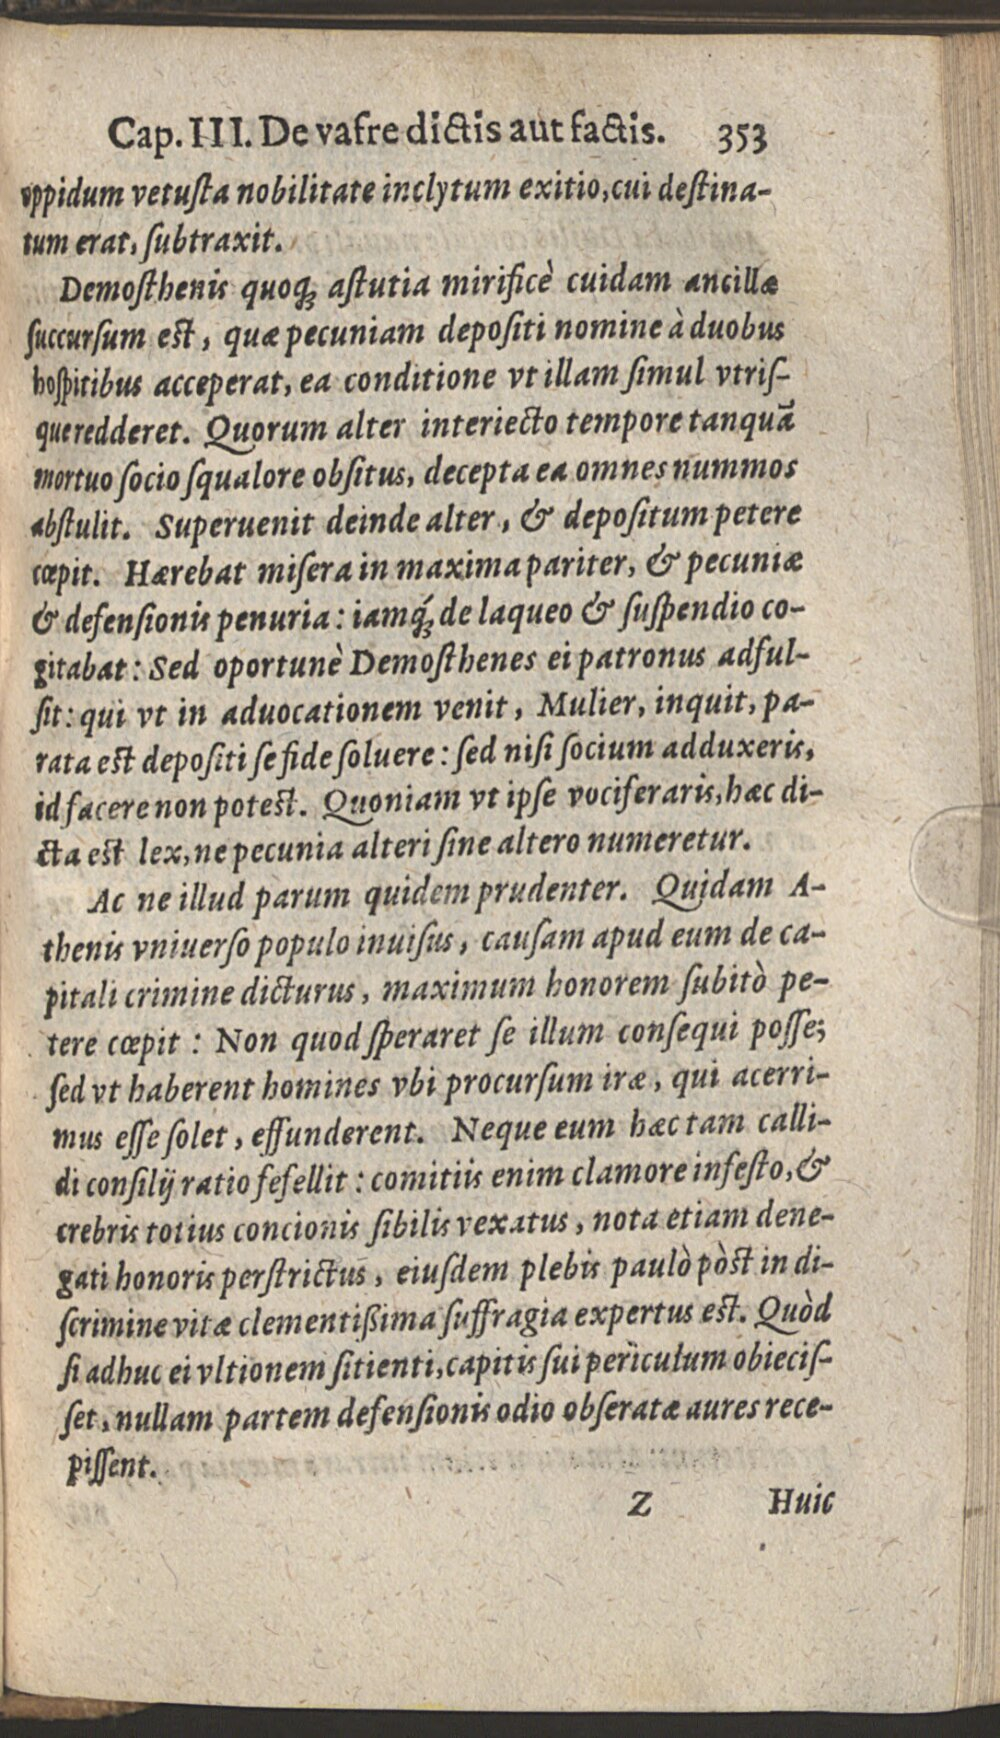 Cap. III. De vafre dictis aut factis. 353
oppidum vetuſta nobilitate inclytum exitio, cui deſtina-
tum erat, ſubtraxit.
Demoſthenis quoq́; aſtutia mirificè cuidam ancillæ
ſuccurſum eſt, quæ pecuniam depoſiti nomine à duobus
hoſpitibus acceperat, ea conditione vt illam ſimul vtriſ-
que redderet. Quorum alter interiecto tempore tanquā
mortuo ſocio ſqualore obſitus, decepta ea omnes nummos
abſtulit. Superuenit deinde alter, & depoſitum petere
cœpit. Hærebat miſera in maxima pariter, & pecuniæ
& defenſionis penuria: iamq́; de laqueo & ſuſpendio co-
gitabat: Sed oportunè Demoſthenes ei patronus adful-
ſit: qui vt in aduocationem venit, Mulier, inquit, pa-
rata eſt depoſiti ſe fide ſoluere: ſed niſi ſocium adduxeris,
id facere non poteſt. Quoniam vt ipſe vociferaris, hæc di-
cta eſt lex, ne pecunia alteri ſine altero numeretur.
Ac ne illud parum quidem prudenter. Quidam A-
thenis vniuerſo populo inuiſus, cauſam apud eum de ca-
pitali crimine dicturus, maximum honorem ſubitò pe-
tere cœpit: Non quod ſperaret ſe illum conſequi poſſe;
ſed vt haberent homines vbi procurſum iræ, qui acerri-
mus eſſe ſolet, effunderent. Neque eum hæc tam calli-
di conſilij ratio fefellit: comitiis enim clamore infeſto, &
crebris totius concionis ſibilis vexatus, nota etiam dene-
gati honoris perſtrictus, eiuſdem plebis paulò pòſt in di-
ſcrimine vitæ clementißima ſuffragia expertus eſt. Quòd
ſi adhuc ei vltionem ſitienti, capitis ſui periculum obieciſ-
ſet, nullam partem defenſionis odio obſeratæ aures rece-
piſſent.
Z Huic